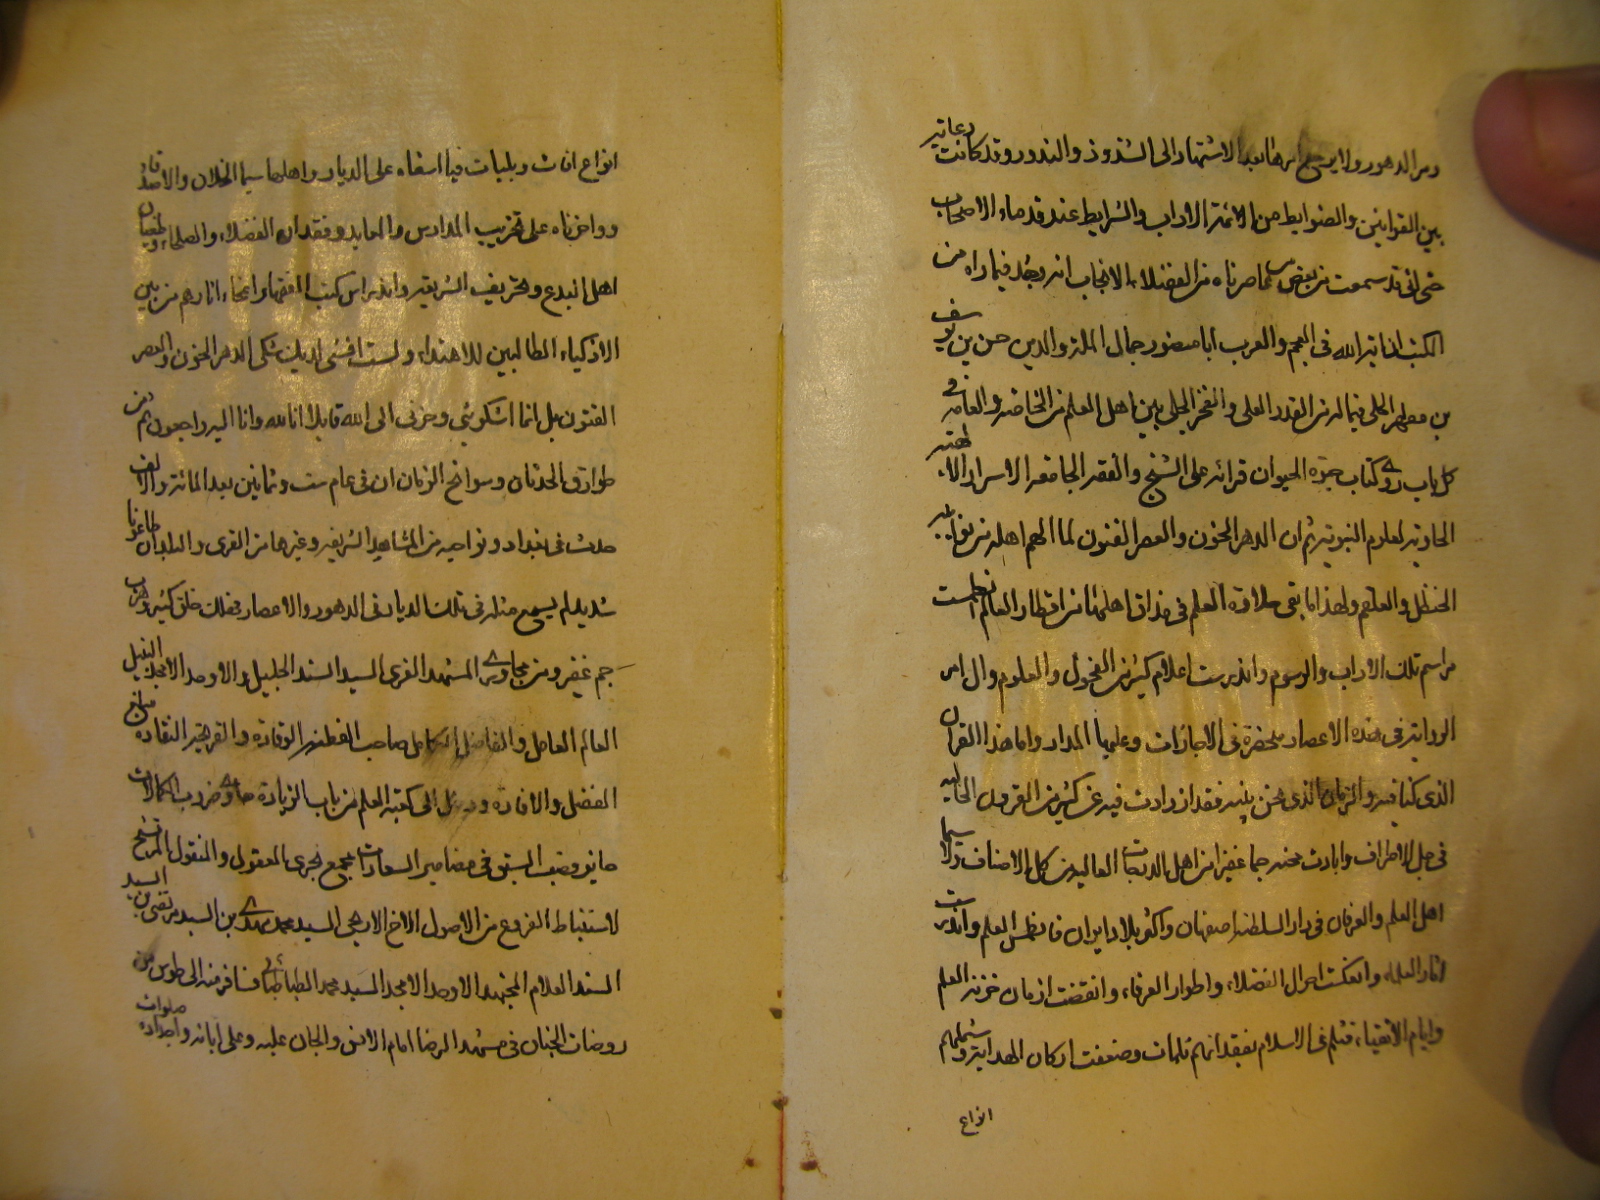 ومر الدهور ولا يرجع امرها بعد الاشتهار الى الشذوذ والندور وقد كانت دعاتير
بين القوانين والضوابط من الائمة الاداب والشرايط عند قدماء الاصحاب
حتى انى قد سمعت من بعض من عاصرناه من الفضلاء الانجاب انه وجد فيما راه من
الكتب اما اية الله فى العجم والعرب ابا منصور جمال الملة والدين حسن بن يوسف
بن مطهر الحلى فيما له من القدر العلى والفخر الجلى بين اهل العلم من الخاصة والعامة
كل باب كتاب حيوة الحيوان قرائة على الشيخ والفقه الجامعة الاسرار الالهية
الحاوية لعلوم النبوية ثم ان الدهر الخون والعصر الفتون لما الهم اهله من نوائبه
الحنظل والعلقم ولهذا ما بقى حلاوة العلم فى مذاق اهلها من اقطار العالم انطمست
مراسم تلك الاداب والرسوم واندرست اعلام كثير من الفحول والعلوم وال امر
الرواية فى هذه الاعصار منحصرة فى الاجازات وعليها المدار واما هذا القران
الذى كنا فيه والزمان الذى نحن بنيه فقد ازدادت فيه عن كثير من القرون الخالية
فى جل الاطراف وابادت محنه جما غفيرا من اهل الدرجات العالية من كل الاصناف ولا سيما
اهل العلم والعرفان فى دار السلطنة اصفهان واكثر بلاد ايران فانطمس العلم واندرست
اثار العلماء وانعكست احوال الفضلاء واطوار العرفاء وانقضت ازمان خزنة العلم
وايام الاتقياء فثلم فى الاسلام بفقدانهم ثلمات وضعفت اركان الهداية وشملهم
انواع
انواع افات وبليات فيا اسفاه على الديار واهلها سيما الخلان والاصدقاء
وواحزناه على تخريب المدارس والمعابد وفقدان الفضلاء والصلحاء ولطغيان
اهل البدع وتحريف الشريعة واندراس كتب الفقهاء وانمحاء اثارهم من بين
الاذكياء الطالبين للاهتداء ولست افشى لديك شكى الدهر الخون والعصر
الفتون بل انما اشكو بثى وحزنى الى الله قايلا انا لله وانا اليه راجعون ثم من
طوارق الحدثان وسوانح الزمان ان فى عام ست وثمانين بعد المائة والالف
حدث فى بغداد ونواحيه من المشاهد الشريفة وغيرها من القرى والبلدان طاعونا
شديد لم يسمع مثله فى تلك الديار فى الدهور والاعصار فهلك خلق كثير وهرب
جم غفير ومن مجاوري المشهد الغرى السيد السند الجليل والاوحد الامجد النبيل
العالم العامل والفاضل الكامل صاحب الفطنة الوقادة والقريحة النقادة منابع
الفضل والافادة ودخل الى كعبة العلم من باب الزيادة حاوي ضروب الكمالات
حايز قصب السبق فى مضامير السعادات مجمع بحرى المعقول والمنقول المرشح
لاستنباط الفروع من الاصول الاخ الاريحى السيد محمد مهدي بن السيد مرتضى بن السيد
السند العلام المجتهد الاوحد الامجد السيد محمد الطباطبائي فسافر منه الى طوس من
روضات الجنان فى مشهد الرضا امام الانس والجان عليه وعلى ابائه واجداده صلوات